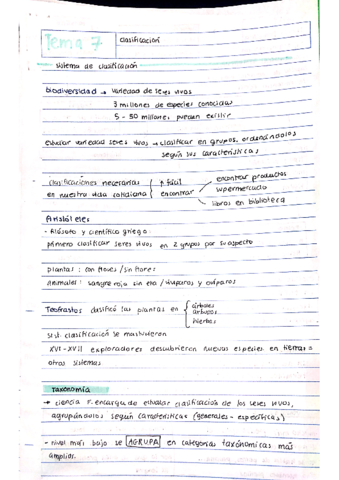 Tema 7
clasificación
sistema de clasificación
biodiversidad → variedad de seres vivos
3 millones de especies conocidas
5 - 50 millones pueden existir
estudiar variedad seres vivos → clasificar en grupos, ordenándolos
según sus características
clasificaciones necesarias
en nuestra vida cotidiana
↑ fácil
encontrar
encontrar productos
supermercado
libros en biblioteca
Aristóteles
- filósofo y científico griego
primero clasificar seres vivos en 2 grupos por su aspecto
plantas : con flores / sin flores
animales : sangre roja sin ella / vivíparos y ovíparos
Teofrastos clasificó las plantas en
árboles
arbustos
hierbas
sist. clasificación se mantuvieron
XVI - XVII exploradores descubrieron nuevas especies en tierras =
otros sistemas
taxonomía
→ ciencia encarga de estudiar clasificación de los seres vivos,
agrupándolos según características (generales - específicas)
- nivel más bajo se AGRUPA en categorías taxonómicas más
amplias.